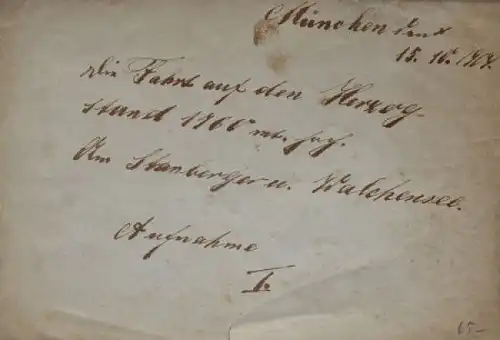 München den
15. 10. 1904.
Die Fahrt auf den Herzog-
stand 1760 mt. hoh.
Am Stanberger u. Walchensee.
Aufnahme
I.
65-